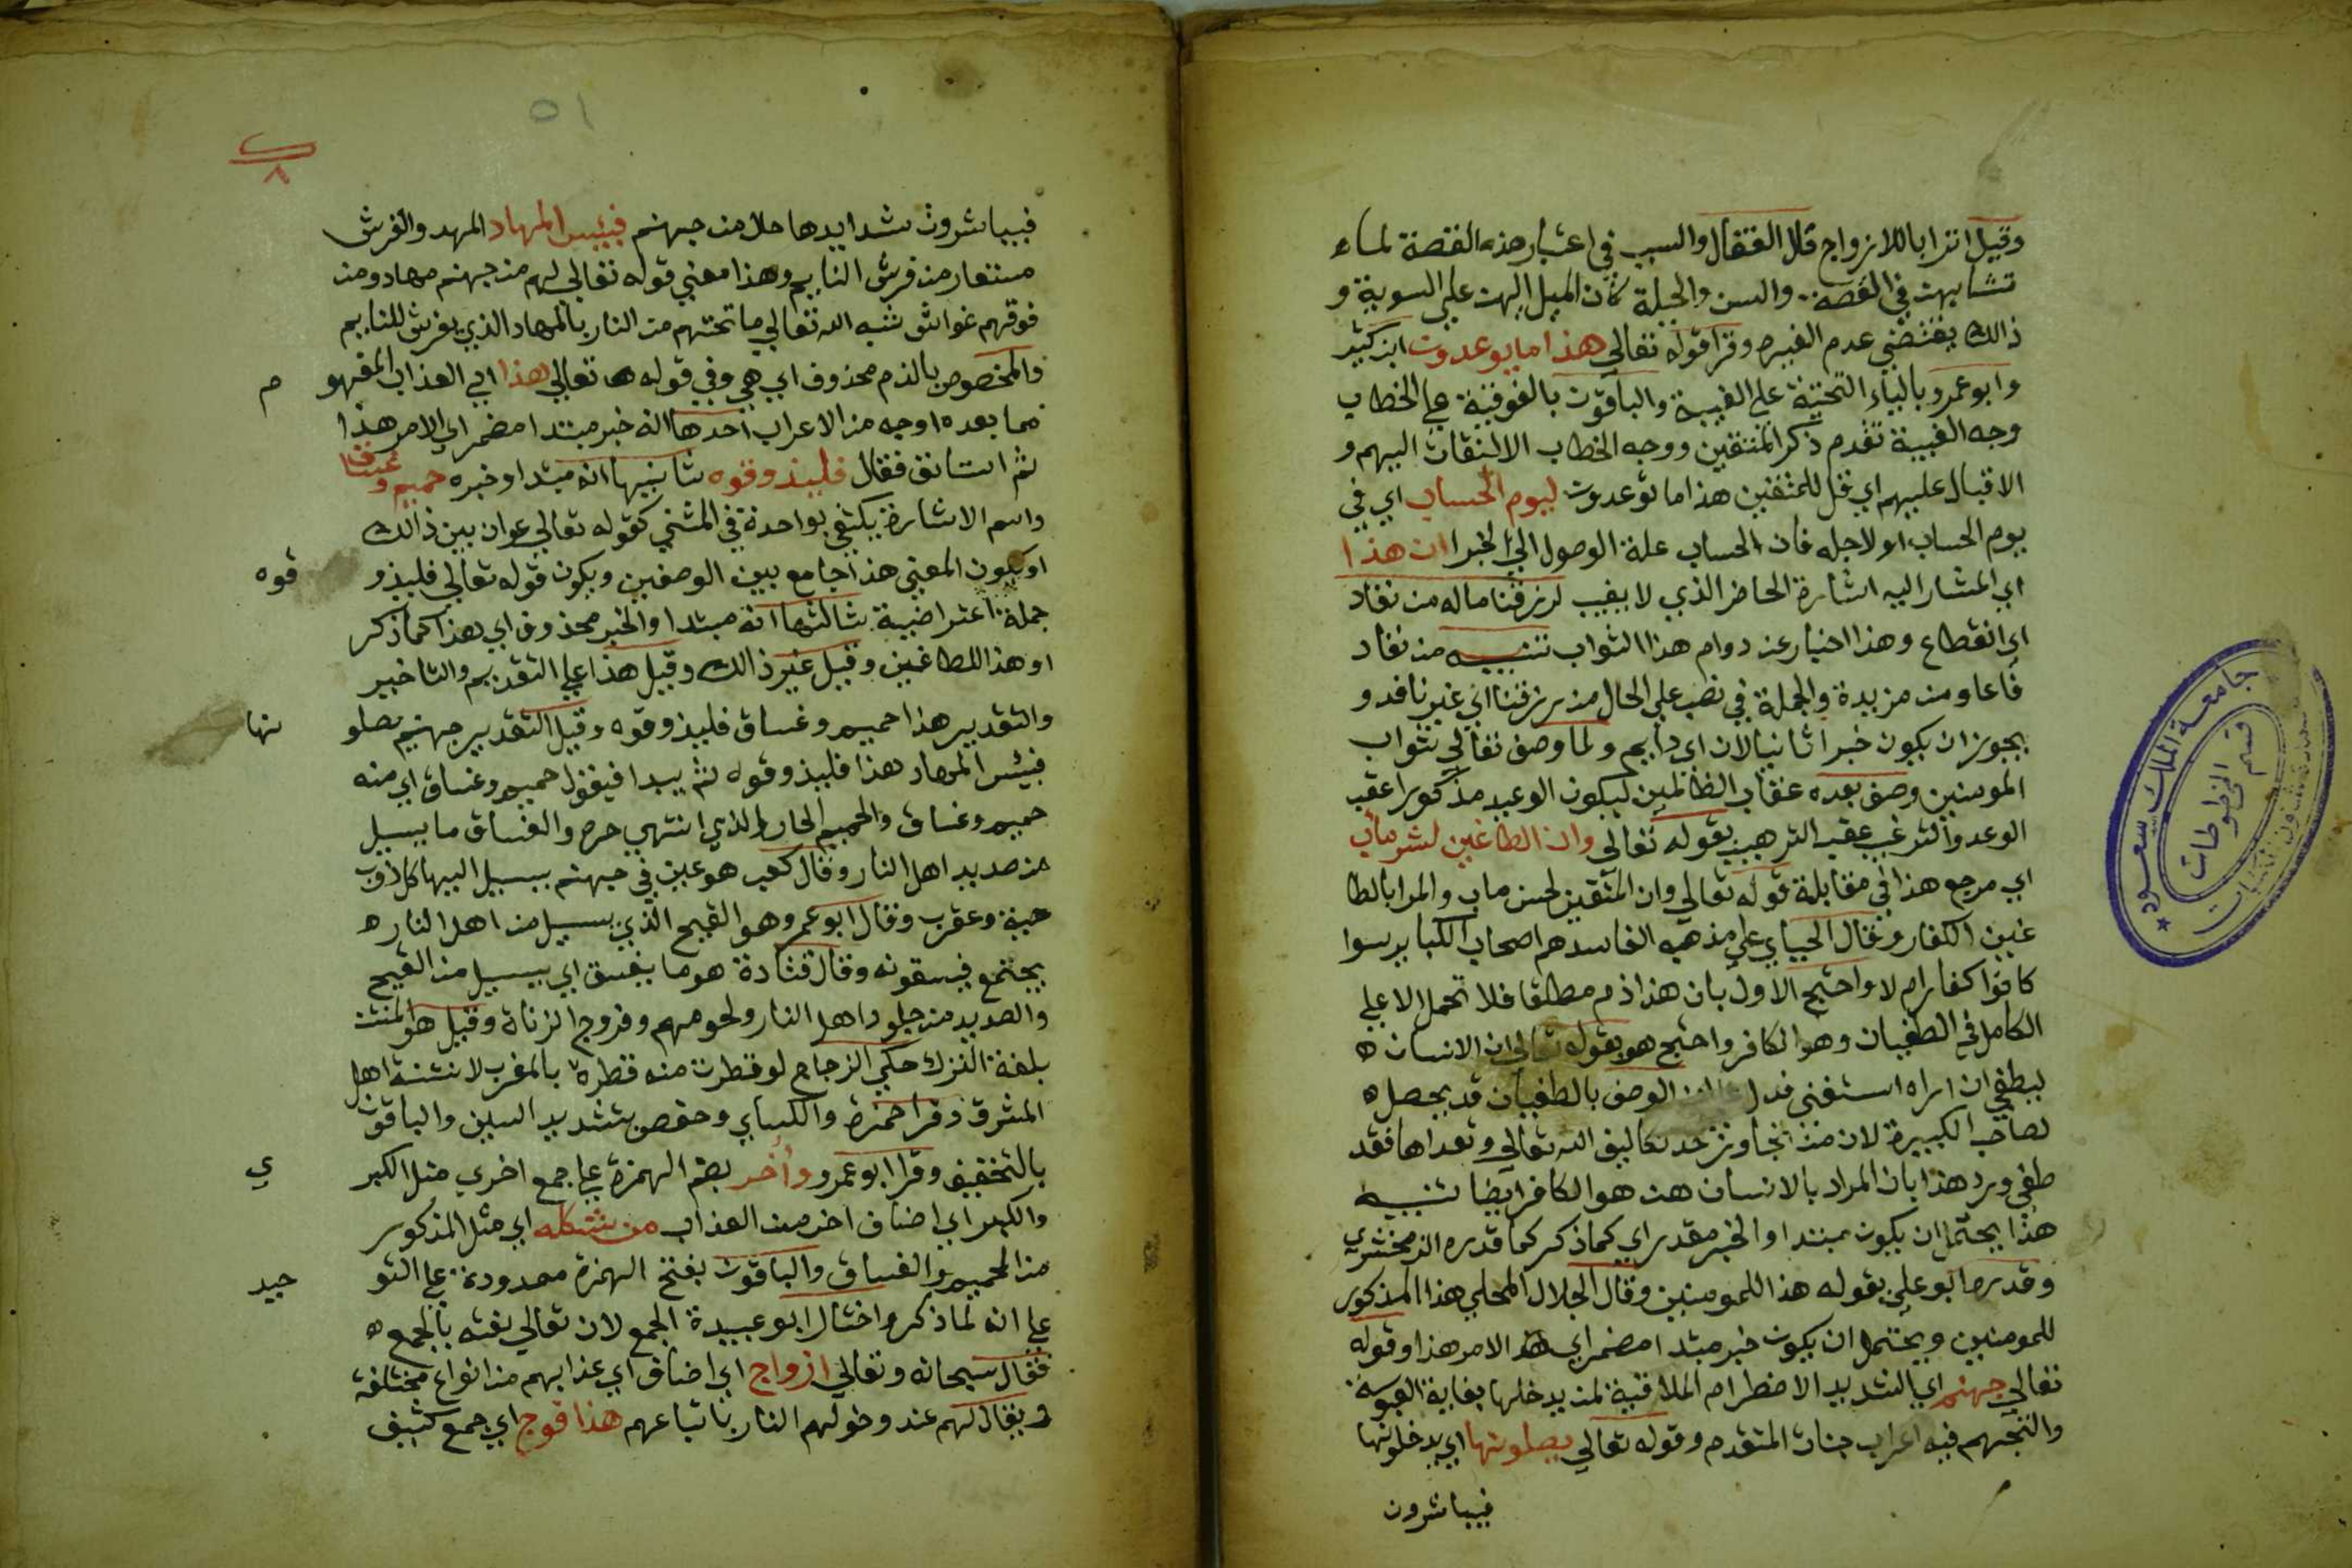 وقيل اترابا للازواج قال القفال والسبب في اعتبار هذه القصة لما
تشابهت في القصة والسن والجبلة كان الميل اليهن على السوية و
ذالك يقتضي عدم الغيرة وقرا قوله تعالي هذا ما يوعدون ابن كثير
وابو عمرو بالياء التحتية على الغيبة والباقون بالفوقية على الخطاب
وجه الغيبة تقدم ذكر المتقين ووجه الخطاب الالتفات اليهم و
الاقبال عليهم اي قل للمتقين هذا ما توعدون ليوم الحساب اي في
يوم الحساب او لاجله فان الحساب علة الوصول الي الجزا ان هذا
اي المشار اليه اشارة الحاضر الذي لا يغيب لرزقنا ماله من نفاد
اي انقطاع وهذا اخبار عن دوام هذا الثواب تنبيه من نفاد
فاعل ومن مزيدة والجملة في نصب على الحال من رزقنا اي غير نافد و
يجوز ان يكون خبرا ثانيا لان اي دايم ولما وصف تعالي ثواب
المومنين وصف بعده عقاب الظالمين ليكون الوعيد مذكورا عقب
الوعد والترغيب عقب الترهيب بقوله تعالي وان الطاغين لشر مئاب
اي مرجع هذا في مقابلة قوله تعالي وان المتقين لحسن ماب والمراد بالطا
غين الكفار وقال الجباي على مذهبه الفاسد هم اصحاب الكباير سوا
كانوا كفارا ام لا واحتج الاول بان هذا ذم مطلقا فلا تحمل الا على
الكامل في الطغيان وهو الكافر واحتج هو بقوله تعالي ان الانسان
ليطغي ان راه استغني فدل الوصف بالطغيان قد يحصل
لصاحب الكبيرة لان من تجاوز حد تكاليف الله تعالي وتعداها فقد
طغي ورد هذا بان المراد بالانسان هنا هو الكافر ايضا تنبيه
هذا يحتمل ان يكون مبتدا والخبر مقدر اي كما ذكر كما قدره الزمخشري
وقدره ابو علي بقوله هذا للمومنين وقال الجلال المحلي هذا المذكور
للمومنين ويحتمل ان يكون خبر مبتدا مضمر اي الامر هذا وقوله
تعالي جهنم اي الشديد الاضطرام الملاقية لمن يدخلها بغاية العبوسة
والتجهم فيه اعراب جنات المتقدم وقوله تعالي يصلونها اي يدخلونها
فيباشرون
جامعة الملك سعود
قسم المخطوطات
٥١
فيباشرون شدايدها حال من جهنم فبئس المهاد المهد والفرش
مستعار من فرش النايم وهذا معني قوله تعالي لهم من جهنم مهاد ومن
فوقهم غواش شبه الله تعالي ما تحتهم من النار بالمهاد الذي يفرش للنايم
والمخصوص بالذم محذوف اي هي وفي قوله تعالي هذا اي العذاب المفهو م
مما بعده اوجه من الاعراب احدها انه خبر مبتدا مضمر اي الامر هذا
ثم استانف فقال فليذوقوه ثانيها انه مبتدا وخبره حميم وغساق
واسم الاشارة يكتفي بواحدة في المثني كقوله تعالي عوان بين ذالك
او يكون المعني هذا جامع بين الوصفين ويكون قوله تعالي فليذو قوه
جملة اعتراضية ثالثها انه مبتدا والخبر محذوف اي هذا كما ذكر
او هذا للطاغين وقيل غير ذالك وقيل هذا على التقديم والتاخير
والتقدير هذا حميم وغساق فليذوقوه وقيل التقدير جهنم يصلو نها
فبئس المهاد هذا فليذوقوه ثم يبدا فيقول حميم وغساق اي منه
حميم وغساق والحميم الحار الذي انتهي حره والغساق ما يسيل
من صديد اهل النار وقال كعب هو عين في جهنم يسيل اليها كل ذوب
حية وعقرب وقال ابو عمرو هو القيح الذي يسيل من اهل النار
يجتمع فيسقونه وقال قتادة هو ما يغسق اي يسيل من القيح
والصديد من جلود اهل النار ولحومهم وفروج الزناة وقيل هو المنتن
بلغة الترك حكي الزجاج لو قطرت منه قطرة بالمغرب لانتنت اهل
المشرق وقرا حمزة والكساي وحفص بتشديد السين والباقون
بالتخفيف وقرا ابو عمرو وأخر بضم الهمزة على جمع اخري مثل الكبر ي
والكبر اي اصناف اخر من العذاب من شكله اي مثل المذكور
من الحميم والغساق والباقون بفتح الهمزة ممدودة على التو حيد
على انه لما ذكر واختار ابو عبيدة الجمع لان تعالي نعته بالجمع
فقال سبحانه وتعالي ازواج اي اصناف اي عذابهم من انواع مختلفة
ويقال لهم عند دخولهم النار باتباعهم هذا فوج اي جمع كثيف